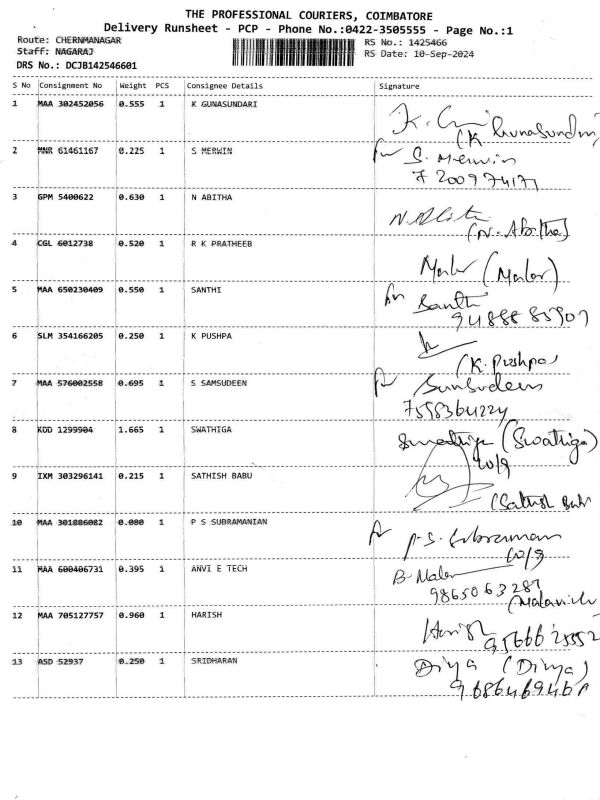 THE PROFESSIONAL COURIERS, COIMBATORE
Delivery Runsheet - PCP - Phone No.:0422-3505555 - Page No.:1
Route: CHERNMANAGAR
RS No.: 1425466
Staff: NAGARAJ
RS Date: 10-Sep-2024
DRS No.: DCJB142546601
S No Consignment No Weight PCS Consignee Details Signature
1 MAA 302452056 0.555 1 K GUNASUNDARI
(K Gunasundri)
2 MNR 61461167 0.225 1 S MERWIN for S. Merwin
3 GPM 5400622 0.630 1 N ABITHA
(N. Abitha)
4 CGL 6012738 0.520 1 R K PRATHEEB
(Malar)
5 MAA 650230409 0.550 1 SANTHI for Santhi
6 SLM 354166205 0.250 1 K PUSHPA
(K. Pushpa)
7 MAA 576002558 0.695 1 S SAMSUDEEN for
8 KOD 1299904 1.665 1 SWATHIGA (Swathiga)
10/9
9 IXM 303296141 0.215 1 SATHISH BABU
10 MAA 301886082 0.080 1 P S SUBRAMANIAN
10/9
11 MAA 600406731 0.395 1 ANVI E TECH
12 MAA 705127757 0.960 1 HARISH Harish
13 ASD 52937 0.250 1 SRIDHARAN Divya (Divya)